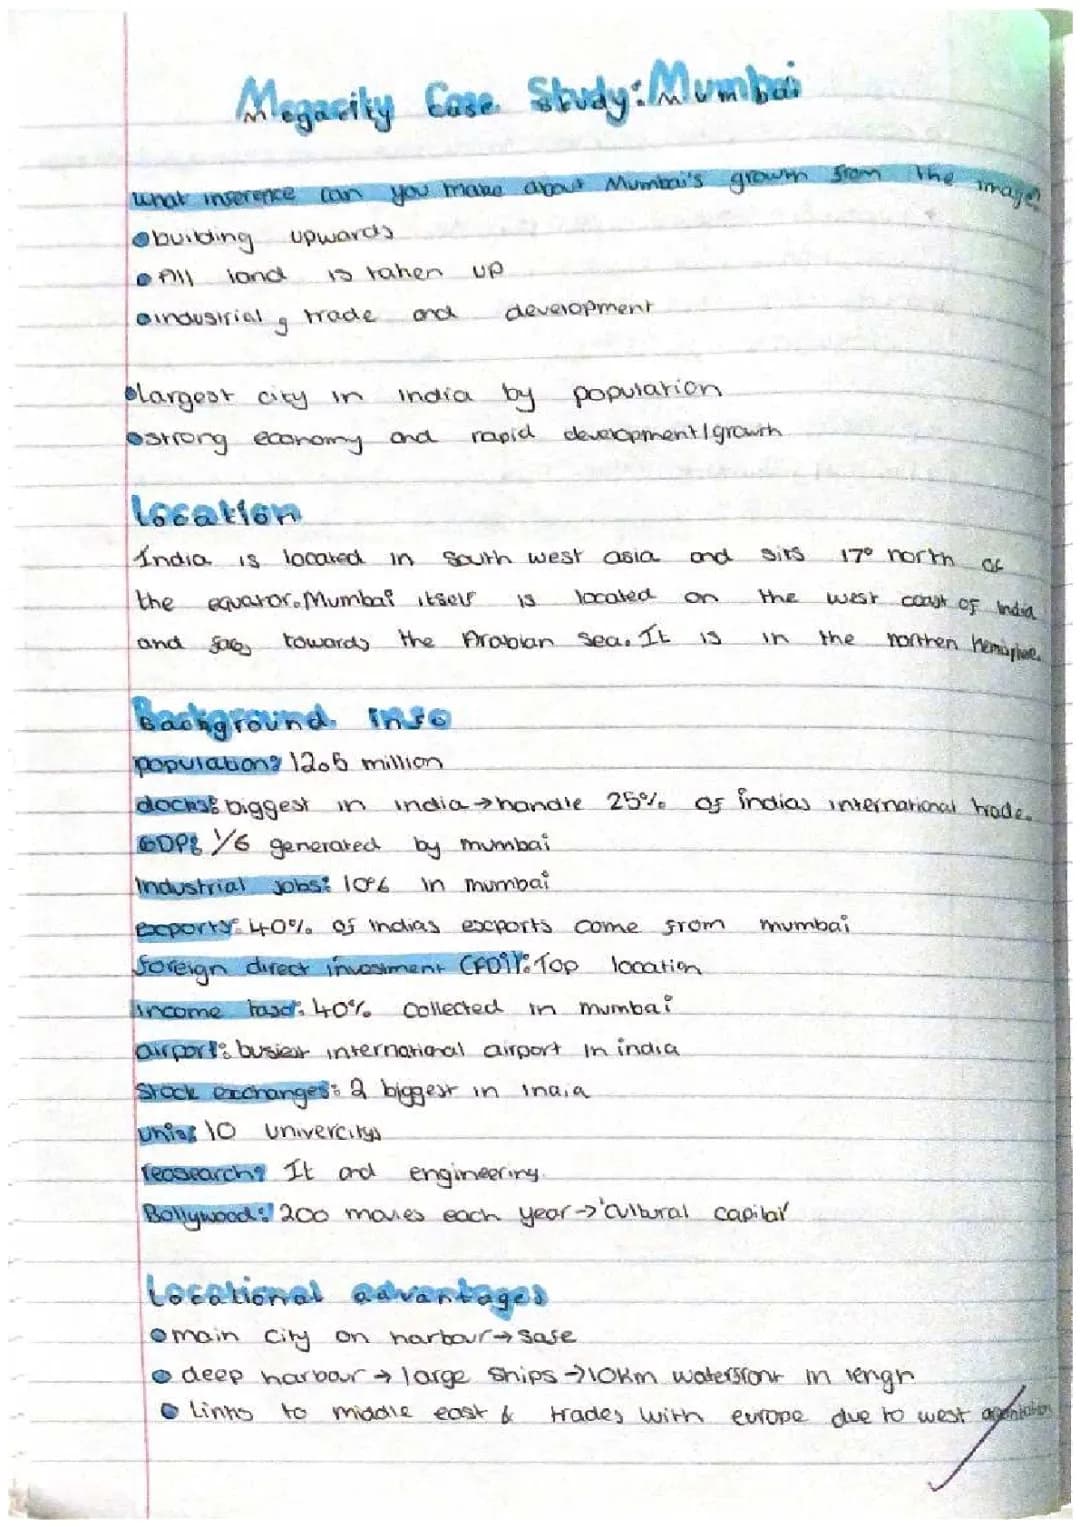 Megacity Case Study: Mumbai
what inference can you make about Mumbai's growth from the image?
building upwards
All land is taken up
industrial, trade and development
largest city in india by population
strong economy and rapid development/growth
Location
India is located in South west asia and sits 17° north of
the equator. Mumbai itself is located on the west coast of india
and towards the Arabian Sea. It is in the northen
Background info
population: 12.5 million
docks: biggest in india → handle 25% of indias international trade.
GDP: 1/6 generated by mumbai
industrial jobs: 10% in mumbai
exports: 40% of indias exports come from mumbai
foreign direct invesment (FDI): Top location
income tax: 40% collected in mumbai
airport: busiest international airport in india
Stock exchanges: 2 biggest in india
Unis: 10 univercitys
reasearch: It and engineering.
Bollywood: 200 movies each year → 'cultural capital'
Locational advantages
main city on harbour → safe
deep harbour → large ships → 10km waterfront in lengh
Links to middle east & trades with europe due to west